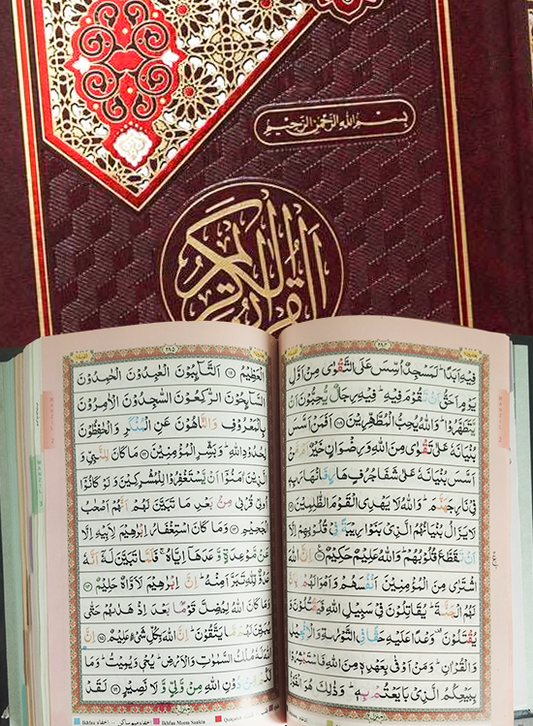 بِسْمِ اللهِ الرَّحْمٰنِ الرَّحِيْمِ
القرآن الكريم
فِيْهِ اَبَدًا ؕ لَمَسْجِدٌ اُسِّسَ عَلَى التَّقْوٰى مِنْ اَوَّلِ
يَوْمٍ اَحَقُّ اَنْ تَقُوْمَ فِيْهِ ؕ فِيْهِ رِجَالٌ يُّحِبُّوْنَ اَنْ
يَّتَطَهَّرُوْا ؕ وَاللّٰهُ يُحِبُّ الْمُطَّهِّرِيْنَ ۝۱۰۸ اَفَمَنْ اَسَّسَ
بُنْيَانَهٗ عَلٰى تَقْوٰى مِنَ اللّٰهِ وَرِضْوَانٍ خَيْرٌ اَمْ مَّنْ
اَسَّسَ بُنْيَانَهٗ عَلٰى شَفَا جُرُفٍ هَارٍ فَانْهَارَ بِهٖ
فِيْ نَارِ جَهَنَّمَ ؕ وَاللّٰهُ لَا يَهْدِى الْقَوْمَ الظّٰلِمِيْنَ ۝
لَا يَزَالُ بُنْيَانُهُمُ الَّذِيْ بَنَوْا رِيْبَةً فِيْ قُلُوْبِهِمْ اِلَّاۤ
اَنْ تَقَطَّعَ قُلُوْبُهُمْ ؕ وَاللّٰهُ عَلِيْمٌ حَكِيْمٌ ۝ اِنَّ اللّٰهَ
اشْتَرٰى مِنَ الْمُؤْمِنِيْنَ اَنْفُسَهُمْ وَاَمْوَالَهُمْ بِاَنَّ
لَهُمُ الْجَنَّةَ ؕ يُقَاتِلُوْنَ فِيْ سَبِيْلِ اللّٰهِ فَيَقْتُلُوْنَ وَ
يُقْتَلُوْنَ وَعْدًا عَلَيْهِ حَقًّا فِى التَّوْرٰىةِ وَالْاِنْجِيْلِ
وَالْقُرْاٰنِ ؕ وَمَنْ اَوْفٰى بِعَهْدِهٖ مِنَ اللّٰهِ فَاسْتَبْشِرُوْا
بِبَيْعِكُمُ الَّذِيْ بَايَعْتُمْ بِهٖ ؕ وَذٰلِكَ هُوَ الْفَوْزُ
الْعَظِيْمُ ۝ اَلتَّآئِبُوْنَ الْعٰبِدُوْنَ الْحٰمِدُوْنَ
السَّآئِحُوْنَ الرّٰكِعُوْنَ السّٰجِدُوْنَ الْاٰمِرُوْنَ
بِالْمَعْرُوْفِ وَالنَّاهُوْنَ عَنِ الْمُنْكَرِ وَالْحٰفِظُوْنَ
لِحُدُوْدِ اللّٰهِ ؕ وَبَشِّرِ الْمُؤْمِنِيْنَ ۝ مَا كَانَ لِلنَّبِيِّ وَ
الَّذِيْنَ اٰمَنُوْۤا اَنْ يَّسْتَغْفِرُوْا لِلْمُشْرِكِيْنَ وَلَوْ كَانُوْۤا
اُولِيْ قُرْبٰى مِنْۢ بَعْدِ مَا تَبَيَّنَ لَهُمْ اَنَّهُمْ اَصْحٰبُ
الْجَحِيْمِ ۝ وَمَا كَانَ اسْتِغْفَارُ اِبْرٰهِيْمَ لِاَبِيْهِ اِلَّا
عَنْ مَّوْعِدَةٍ وَّعَدَهَاۤ اِيَّاهُ ۚ فَلَمَّا تَبَيَّنَ لَهٗۤ اَنَّهٗ
عَدُوٌّ لِّلّٰهِ تَبَرَّاَ مِنْهُ ؕ اِنَّ اِبْرٰهِيْمَ لَاَوَّاهٌ حَلِيْمٌ ۝
وَمَا كَانَ اللّٰهُ لِيُضِلَّ قَوْمًۢا بَعْدَ اِذْ هَدٰىهُمْ حَتّٰى
يُبَيِّنَ لَهُمْ مَّا يَتَّقُوْنَ ؕ اِنَّ اللّٰهَ بِكُلِّ شَيْءٍ عَلِيْمٌ ۝ اِنَّ
اللّٰهَ لَهٗ مُلْكُ السَّمٰوٰتِ وَالْاَرْضِ ؕ يُحْيٖ وَيُمِيْتُ ؕ وَمَا
لَكُمْ مِّنْ دُوْنِ اللّٰهِ مِنْ وَّلِيٍّ وَّلَا نَصِيْرٍ ۝ لَقَدْ
Ikhfaa إخفاء Ikhfaa Meem Saakin إخفاء ميم ساكن Qalqala